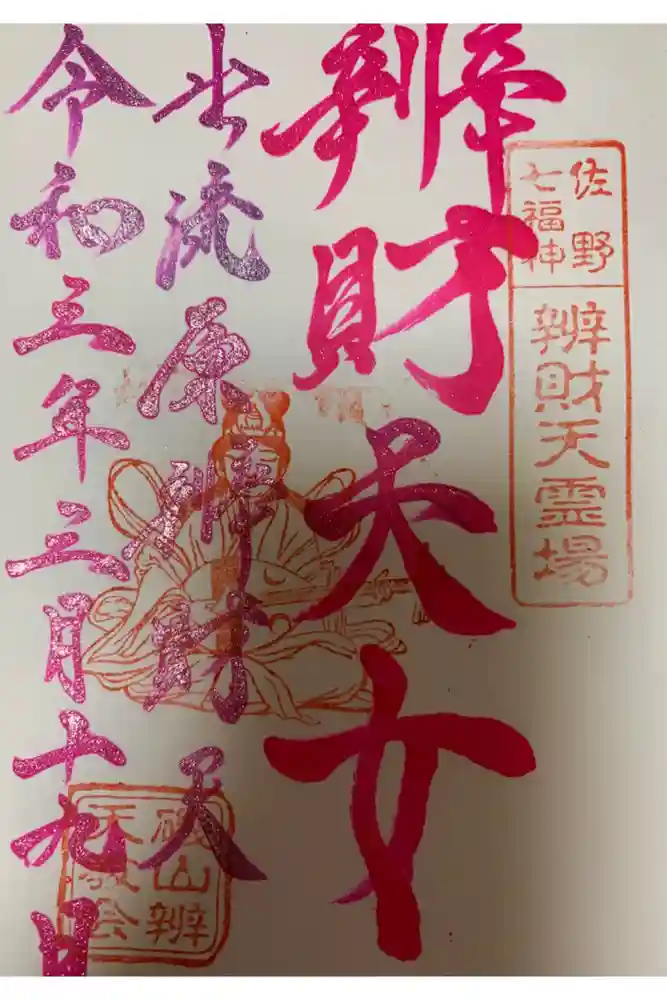 佐野
七福神
辨財天霊場
辨財天女
出流原辨財天
令和三年三月十九日
磯山辨
天教会